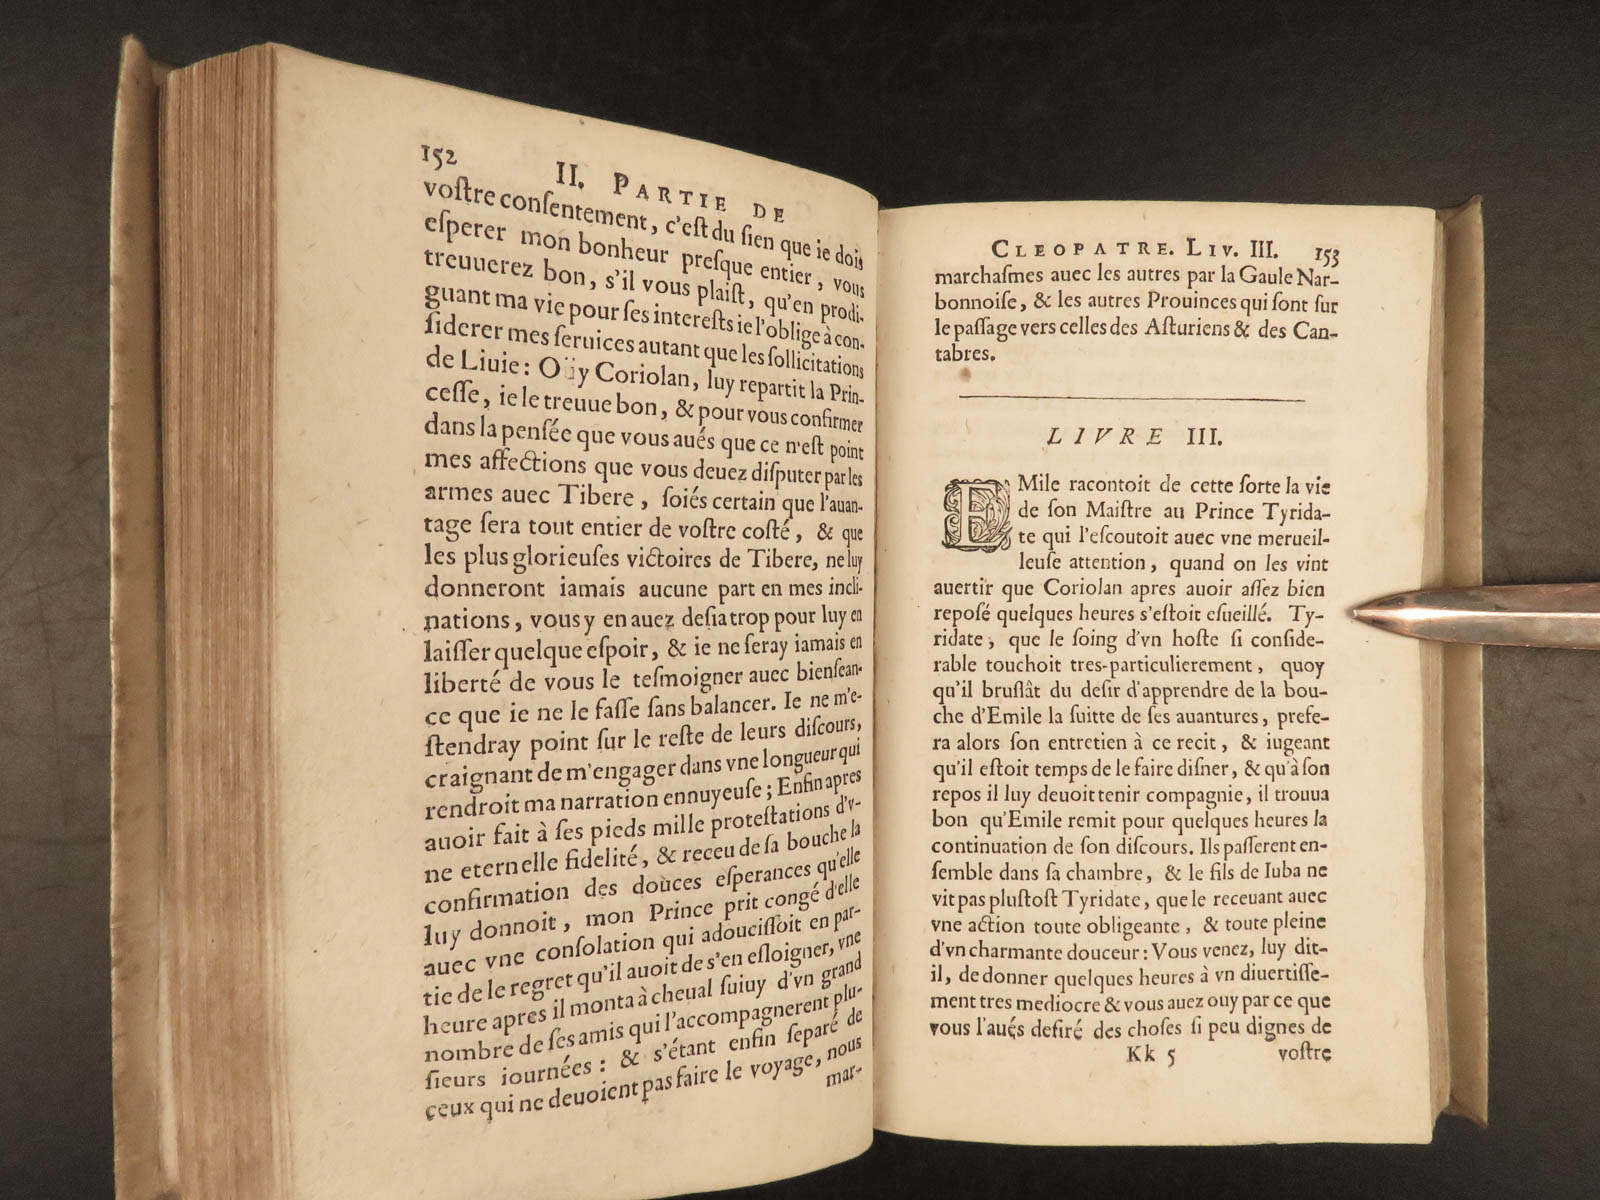 152
II. PARTIE DE
voſtre conſentement, c'eſt du ſien que ie dois
eſperer mon bonheur preſque entier, vous
treuuerez bon, s'il vous plaiſt, qu'en prodi-
guant ma vie pour ſes intereſts ie l'oblige à con-
ſiderer mes ſeruices autant que les ſollicitations
de Liuie: Oüy Coriolan, luy repartit la Prin-
ceſſe, ie le treuue bon, & pour vous confirmer
dans la penſée que vous aués que ce n'eſt point
mes affections que vous deuez diſputer par les
armes auec Tibere, ſoiés certain que l'auan-
tage ſera tout entier de voſtre coſté, & que
les plus glorieuſes victoires de Tibere, ne luy
donneront iamais aucune part en mes incli-
nations, vous y en auez deſia trop pour luy en
laiſſer quelque eſpoir, & ie ne ſeray iamais en
liberté de vous le teſmoigner auec bienſean-
ce que ie ne le faſſe ſans balancer. Ie ne m'e-
ſtendray point ſur le reſte de leurs diſcours,
craignant de m'engager dans vne longueur qui
rendroit ma narration ennuyeuſe; Enfin apres
auoir fait à ſes pieds mille proteſtations d'v-
ne eternelle fidelité, & receu de ſa bouche la
confirmation des douces eſperances qu'elle
luy donnoit, mon Prince prit congé d'elle
auec vne conſolation qui adouciſſoit en par-
tie de le regret qu'il auoit de s'en eſloigner, vne
heure apres il monta à cheual ſuiuy d'vn grand
nombre de ſes amis qui l'accompagnerent plu-
ſieurs iournées: & s'étant enfin ſeparé de
ceux qui ne deuoient pas faire le voyage, nous
mar-
CLEOPATRE. LIV. III. 153
marchaſmes auec les autres par la Gaule Nar-
bonnoiſe, & les autres Prouinces qui ſont ſur
le paſſage vers celles des Aſturiens & des Can-
tabres.
LIVRE III.
EMile racontoit de cette ſorte la vie
de ſon Maiſtre au Prince Tyrida-
te qui l'eſcoutoit auec vne merueil-
leuſe attention, quand on les vint
auertir que Coriolan apres auoir aſſez bien
repoſé quelques heures s'eſtoit eſueillé. Ty-
ridate, que le ſoing d'vn hoſte ſi conſide-
rable touchoit tres-particulierement, quoy
qu'il bruſlât du deſir d'apprendre de la bou-
che d'Emile la ſuitte de ſes auantures, prefe-
ra alors ſon entretien à ce recit, & iugeant
qu'il eſtoit temps de le faire diſner, & qu'à ſon
repos il luy deuoit tenir compagnie, il trouua
bon qu'Emile remit pour quelques heures la
continuation de ſon diſcours. Ils paſſerent en-
ſemble dans ſa chambre, & le fils de Iuba ne
vit pas pluſtoſt Tyridate, que le receuant auec
vne action toute obligeante, & toute pleine
d'vn charmante douceur: Vous venez, luy dit-
il, de donner quelques heures à vn diuertiſſe-
ment tres mediocre & vous auez ouy par ce que
vous l'aués deſiré des choſes ſi peu dignes de
Kk 5 voſtre